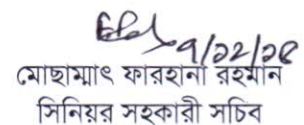 ৭/১২/১৫
মোছাম্মাৎ ফারহানা রহমান
সিনিয়র সহকারী সচিব